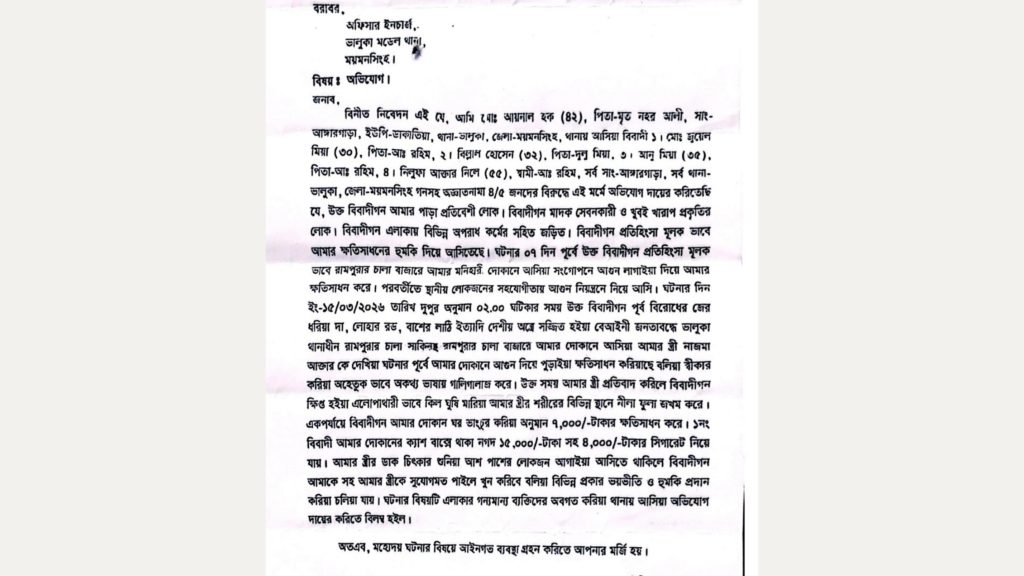 বরাবর,
অফিসার ইনচার্জ,
ভালুকা মডেল থানা,
ময়মনসিংহ।
বিষয় ঃ অভিযোগ।
জনাব,
বিনীত নিবেদন এই যে, আমি মোঃ আয়নাল হক (৪২), পিতা-মৃত নহর আলী, সাং-
আঙ্গারগাড়া, ইউপি-ডাকাতিয়া, থানা-ভালুকা, জেলা-ময়মনসিংহ, থানায় আসিয়া বিবাদী ১। মোঃ জুয়েল
মিয়া (৩০), পিতা-আঃ রহিম, ২। বিল্লাল হোসেন (৩২), পিতা-দুলু মিয়া, ৩। আনু মিয়া (৩৫),
পিতা-আঃ রহিম, ৪। নিলুফা আক্তার নিলে (৫৫), স্বামী-আঃ রহিম, সর্ব সাং-আঙ্গারগাড়া, সর্ব থানা-
ভালুকা, জেলা-ময়মনসিংহ গনসহ অজ্ঞাতনামা ৪/৫ জনদের বিরুদ্ধে এই মর্মে অভিযোগ দায়ের করিতেছি
যে, উক্ত বিবাদীগন আমার পাড়া প্রতিবেশী লোক। বিবাদীগন মাদক সেবনকারী ও খুবই খারাপ প্রকৃতির
লোক। বিবাদীগন এলাকায় বিভিন্ন অপরাধ কর্মের সহিত জড়িত। বিবাদীগন প্রতিহিংসা মূলক ভাবে
আমার ক্ষতিসাধনের হুমকি দিয়ে আসিতেছে। ঘটনার ০৭ দিন পূর্বে উক্ত বিবাদীগন প্রতিহিংসা মূলক
ভাবে রামপুরার চালা বাজারে আমার মনিহারী দোকানে আসিয়া সংগোপনে আগুন লাগাইয়া দিয়ে আমার
ক্ষতিসাধন করে। পরবর্তীতে স্থানীয় লোকজনের সহযোগীতায় আগুন নিয়ন্ত্রনে নিয়ে আসি। ঘটনার দিন
ইং-১৫/০৩/২০২৬ তারিখ দুপুর অনুমান ০২.০০ ঘটিকার সময় উক্ত বিবাদীগন পূর্ব বিরোধের জের
ধরিয়া দা, লোহার রড, বাশের লাঠি ইত্যাদি দেশীয় অস্ত্রে সজ্জিত হইয়া বেআইনী জনতাবদ্ধে ভালুকা
থানাধীন রামপুরার চালা সাকিনস্থ রামপুরার চালা বাজারে আমার দোকানে আসিয়া আমার স্ত্রী নাজমা
আক্তার কে দেখিয়া ঘটনার পূর্বে আমার দোকানে আগুন দিয়ে পুড়াইয়া ক্ষতিসাধন করিয়াছে বলিয়া স্বীকার
করিয়া অহেতুক ভাবে অকথ্য ভাষায় গালিগালাজ করে। উক্ত সময় আমার স্ত্রী প্রতিবাদ করিলে বিবাদীগন
ক্ষিপ্ত হইয়া এলোপাথারী ভাবে কিল ঘুষি মারিয়া আমার স্ত্রীর শরীরের বিভিন্ন স্থানে নীলা ফুলা জখম করে।
একপর্যায়ে বিবাদীগন আমার দোকান ঘর ভাংচুর করিয়া অনুমান ৭,০০০/-টাকার ক্ষতিসাধন করে। ১নং
বিবাদী আমার দোকানের ক্যাশ বাক্সে থাকা নগদ ১৫,০০০/-টাকা সহ ৪,০০০/-টাকার সিগারেট নিয়ে
যায়। আমার স্ত্রীর ডাক চিৎকার শুনিয়া আশ পাশের লোকজন আগাইয়া আসিতে থাকিলে বিবাদীগন
আমাকে সহ আমার স্ত্রীকে সুযোগমত পাইলে খুন করিবে বলিয়া বিভিন্ন প্রকার ভয়ভীতি ও হুমকি প্রদান
করিয়া চলিয়া যায়। ঘটনার বিষয়টি এলাকার গন্যমান্য ব্যক্তিদের অবগত করিয়া থানায় আসিয়া অভিযোগ
দায়ের করিতে বিলম্ব হইল।
অতএব, মহোদয় ঘটনার বিষয়ে আইনগত ব্যবস্থা গ্রহন করিতে আপনার মর্জি হয়।